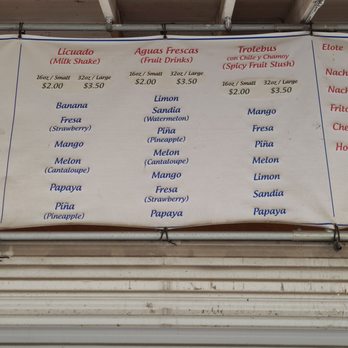 Licuado
(Milk Shake)
16oz / Small 32oz / Large
$2.00 $3.50
Banana
Fresa
(Strawberry)
Mango
Melon
(Cantaloupe)
Papaya
Piña
(Pineapple)
Aguas Frescas
(Fruit Drinks)
16oz / Small 32oz / Large
$2.00 $3.50
Limon
Sandia
(Watermelon)
Piña
(Pineapple)
Melon
(Cantaloupe)
Mango
Fresa
(Strawberry)
Papaya
Trolebus
con Chile y Chamoy
(Spicy Fruit Slush)
16oz / Small 32oz / Large
$2.00 $3.50
Mango
Fresa
Piña
Melon
Limon
Sandia
Papaya
Elote
Nach
Nach
Frito
Ho